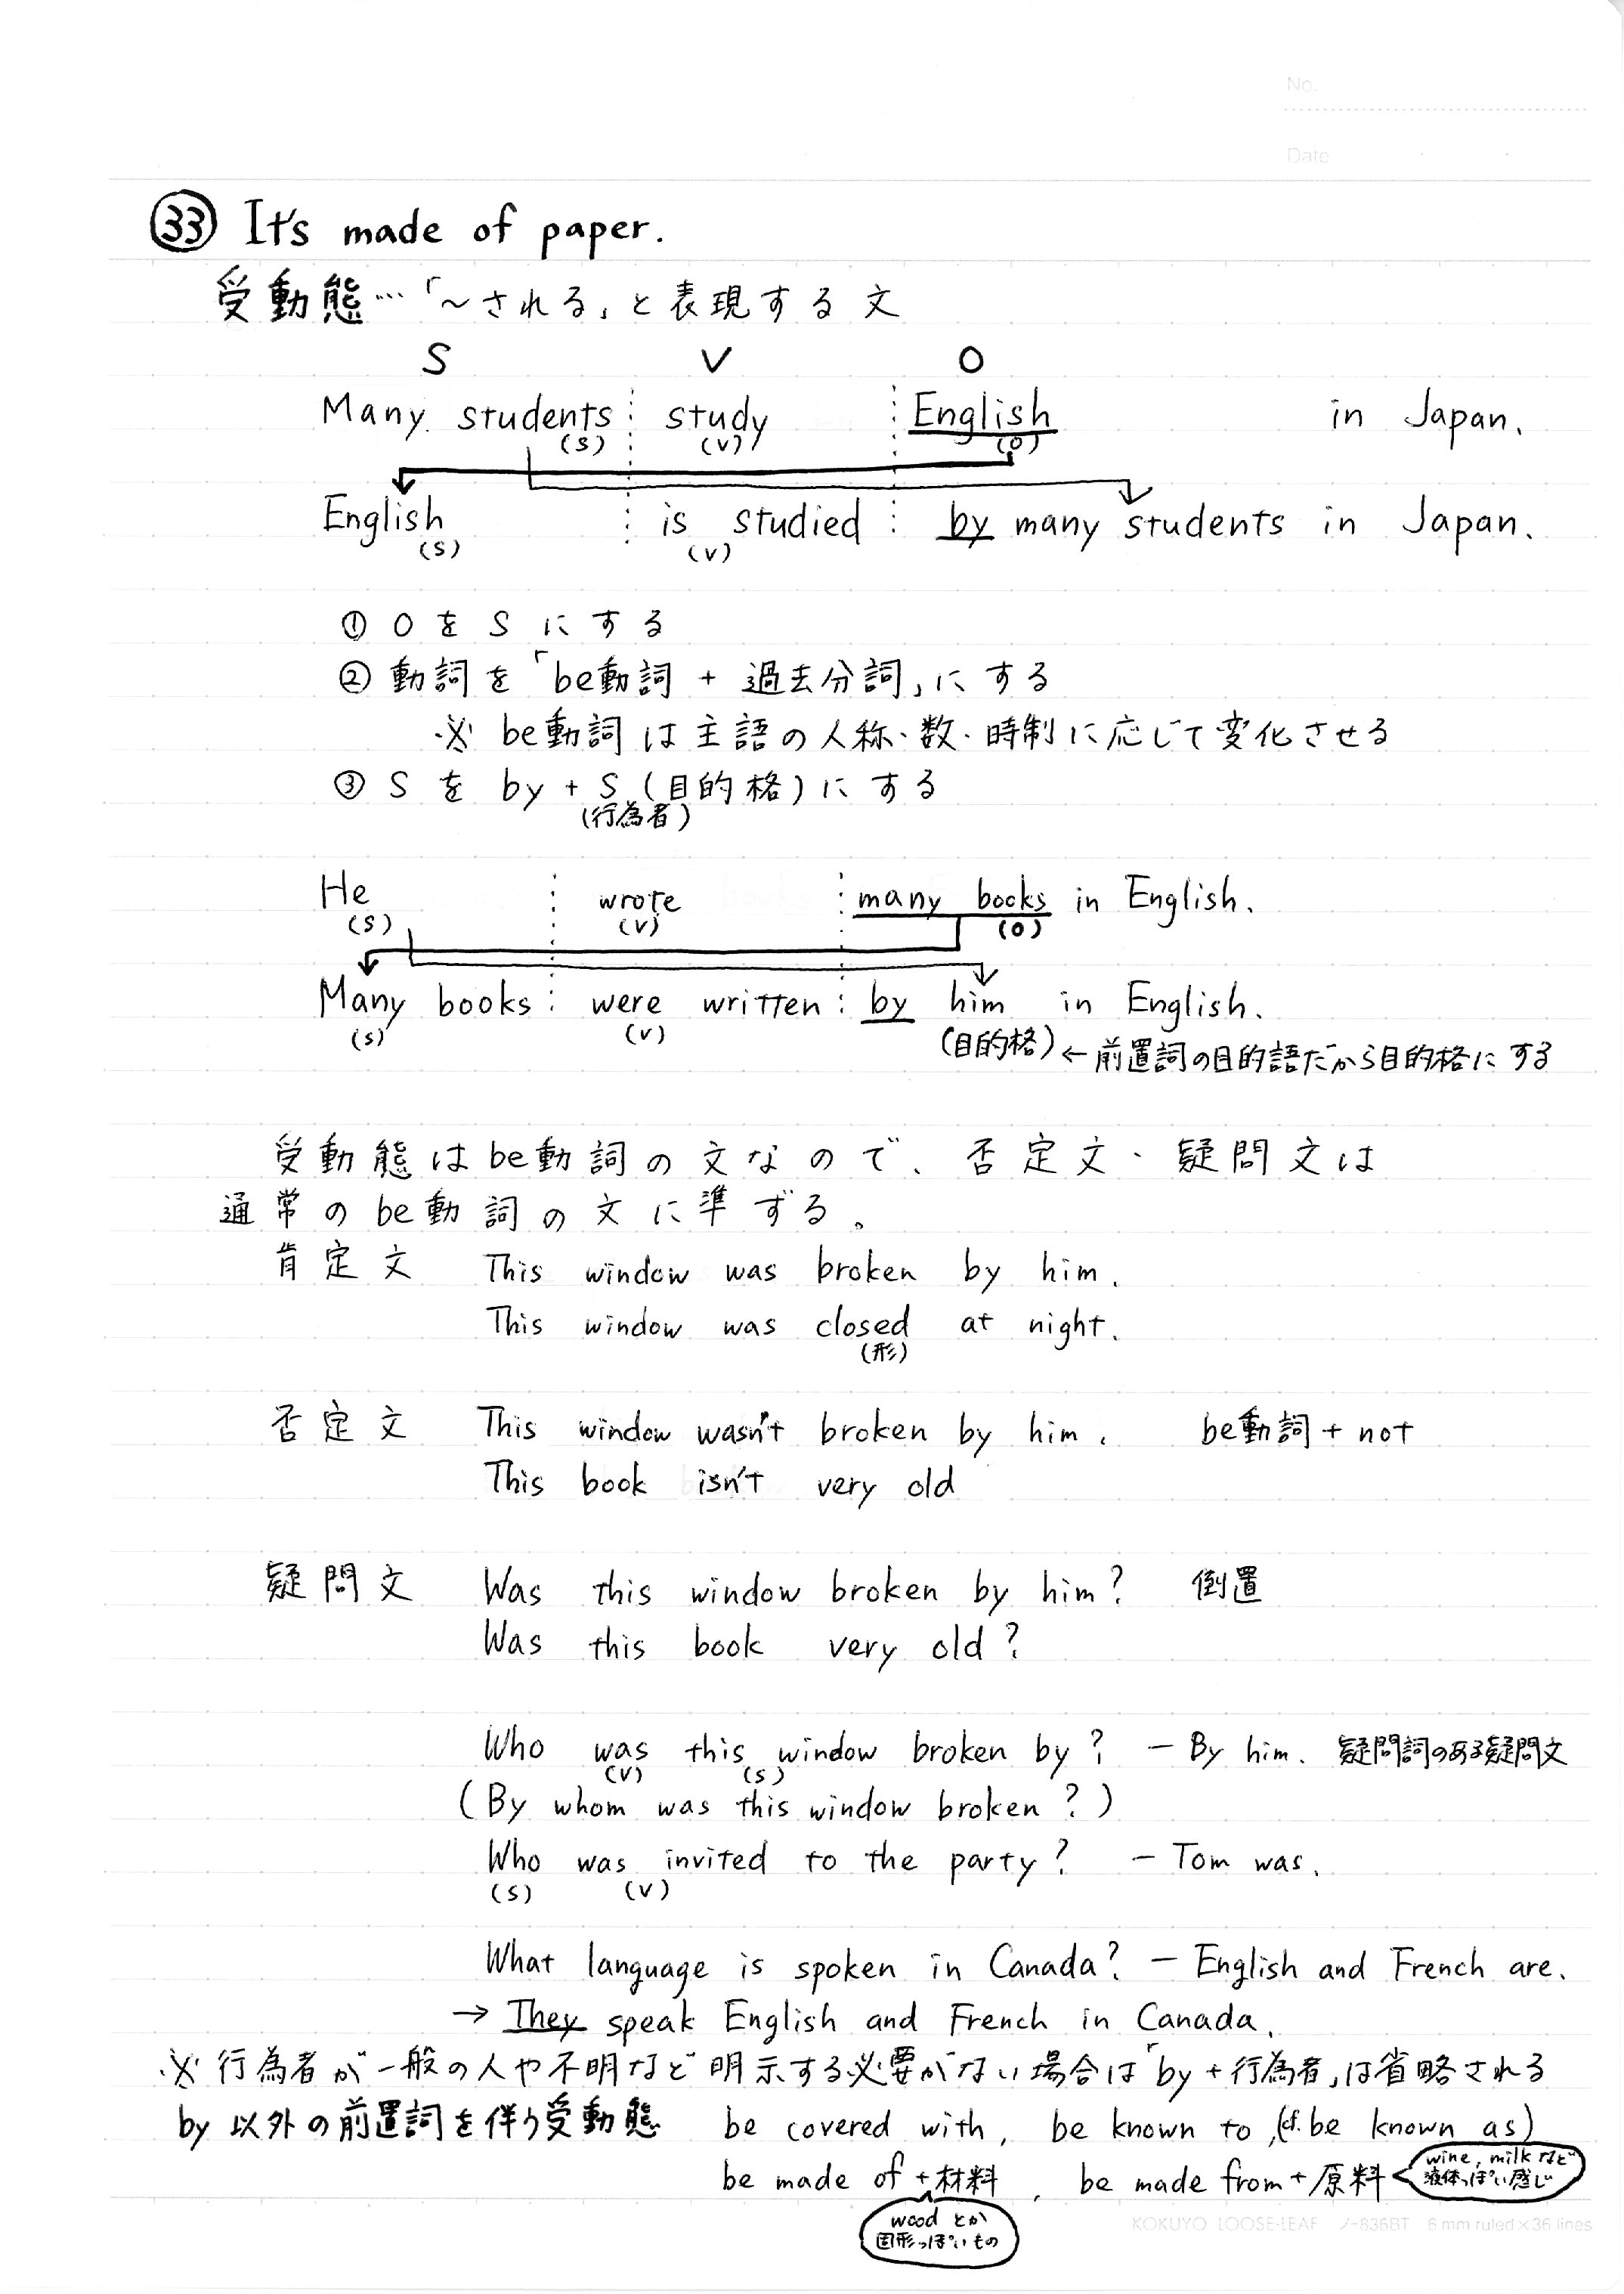 No.
Date
㉝ It's made of paper.
受動態…「～される」と表現する文
S V O
Many students study English in Japan.
(S) (V) (O)
English is studied by many students in Japan.
(S) (V)
① OをSにする
② 動詞を「be動詞 + 過去分詞」にする
※ be動詞は主語の人称・数・時制に応じて変化させる
③ Sを by + S (目的格)にする
(行為者)
He wrote many books in English.
(S) (V) (O)
Many books were written by him in English.
(S) (V) (目的格) ← 前置詞の目的語だから目的格にする
受動態はbe動詞の文なので、否定文・疑問文は
通常のbe動詞の文に準ずる。
肯定文 This window was broken by him.
This window was closed at night.
(形)
否定文 This window wasn't broken by him. be動詞 + not
This book isn't very old
疑問文 Was this window broken by him? 倒置
Was this book very old?
Who was this window broken by? — By him. 疑問詞のある疑問文
(V) (S)
(By whom was this window broken?)
Who was invited to the party? — Tom was.
(S) (V)
What language is spoken in Canada? — English and French are.
→ They speak English and French in Canada.
※ 行為者が一般の人や不明など明示する必要がない場合は「by + 行為者」は省略される
by 以外の前置詞を伴う受動態 be covered with, be known to, (cf. be known as)
be made of + 材料, be made from + 原料
wine, milk など
液体っぽい感じ
wood とか
固形っぽいもの
KOKUYO LOOSE-LEAF ノ-836BT 6 mm ruled×36 lines